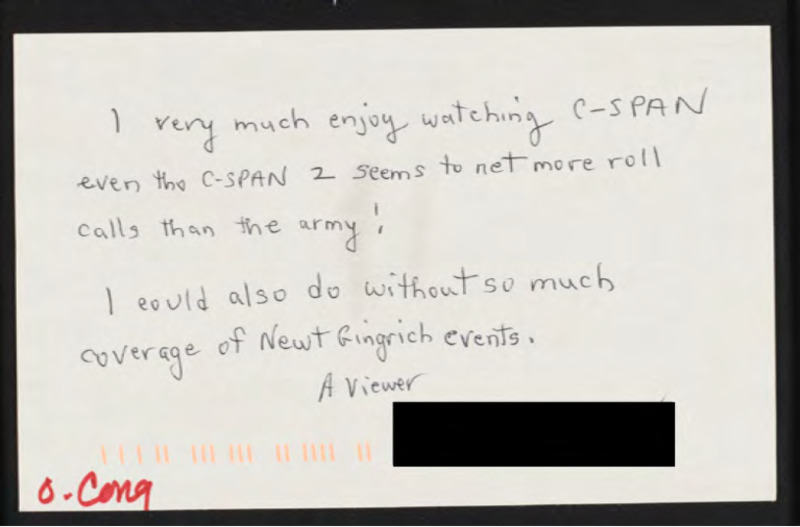 I very much enjoy watching C-SPAN
even tho C-SPAN 2 seems to net more roll
calls than the army!
I could also do without so much
coverage of Newt Gingrich events.
A Viewer
O. Cong